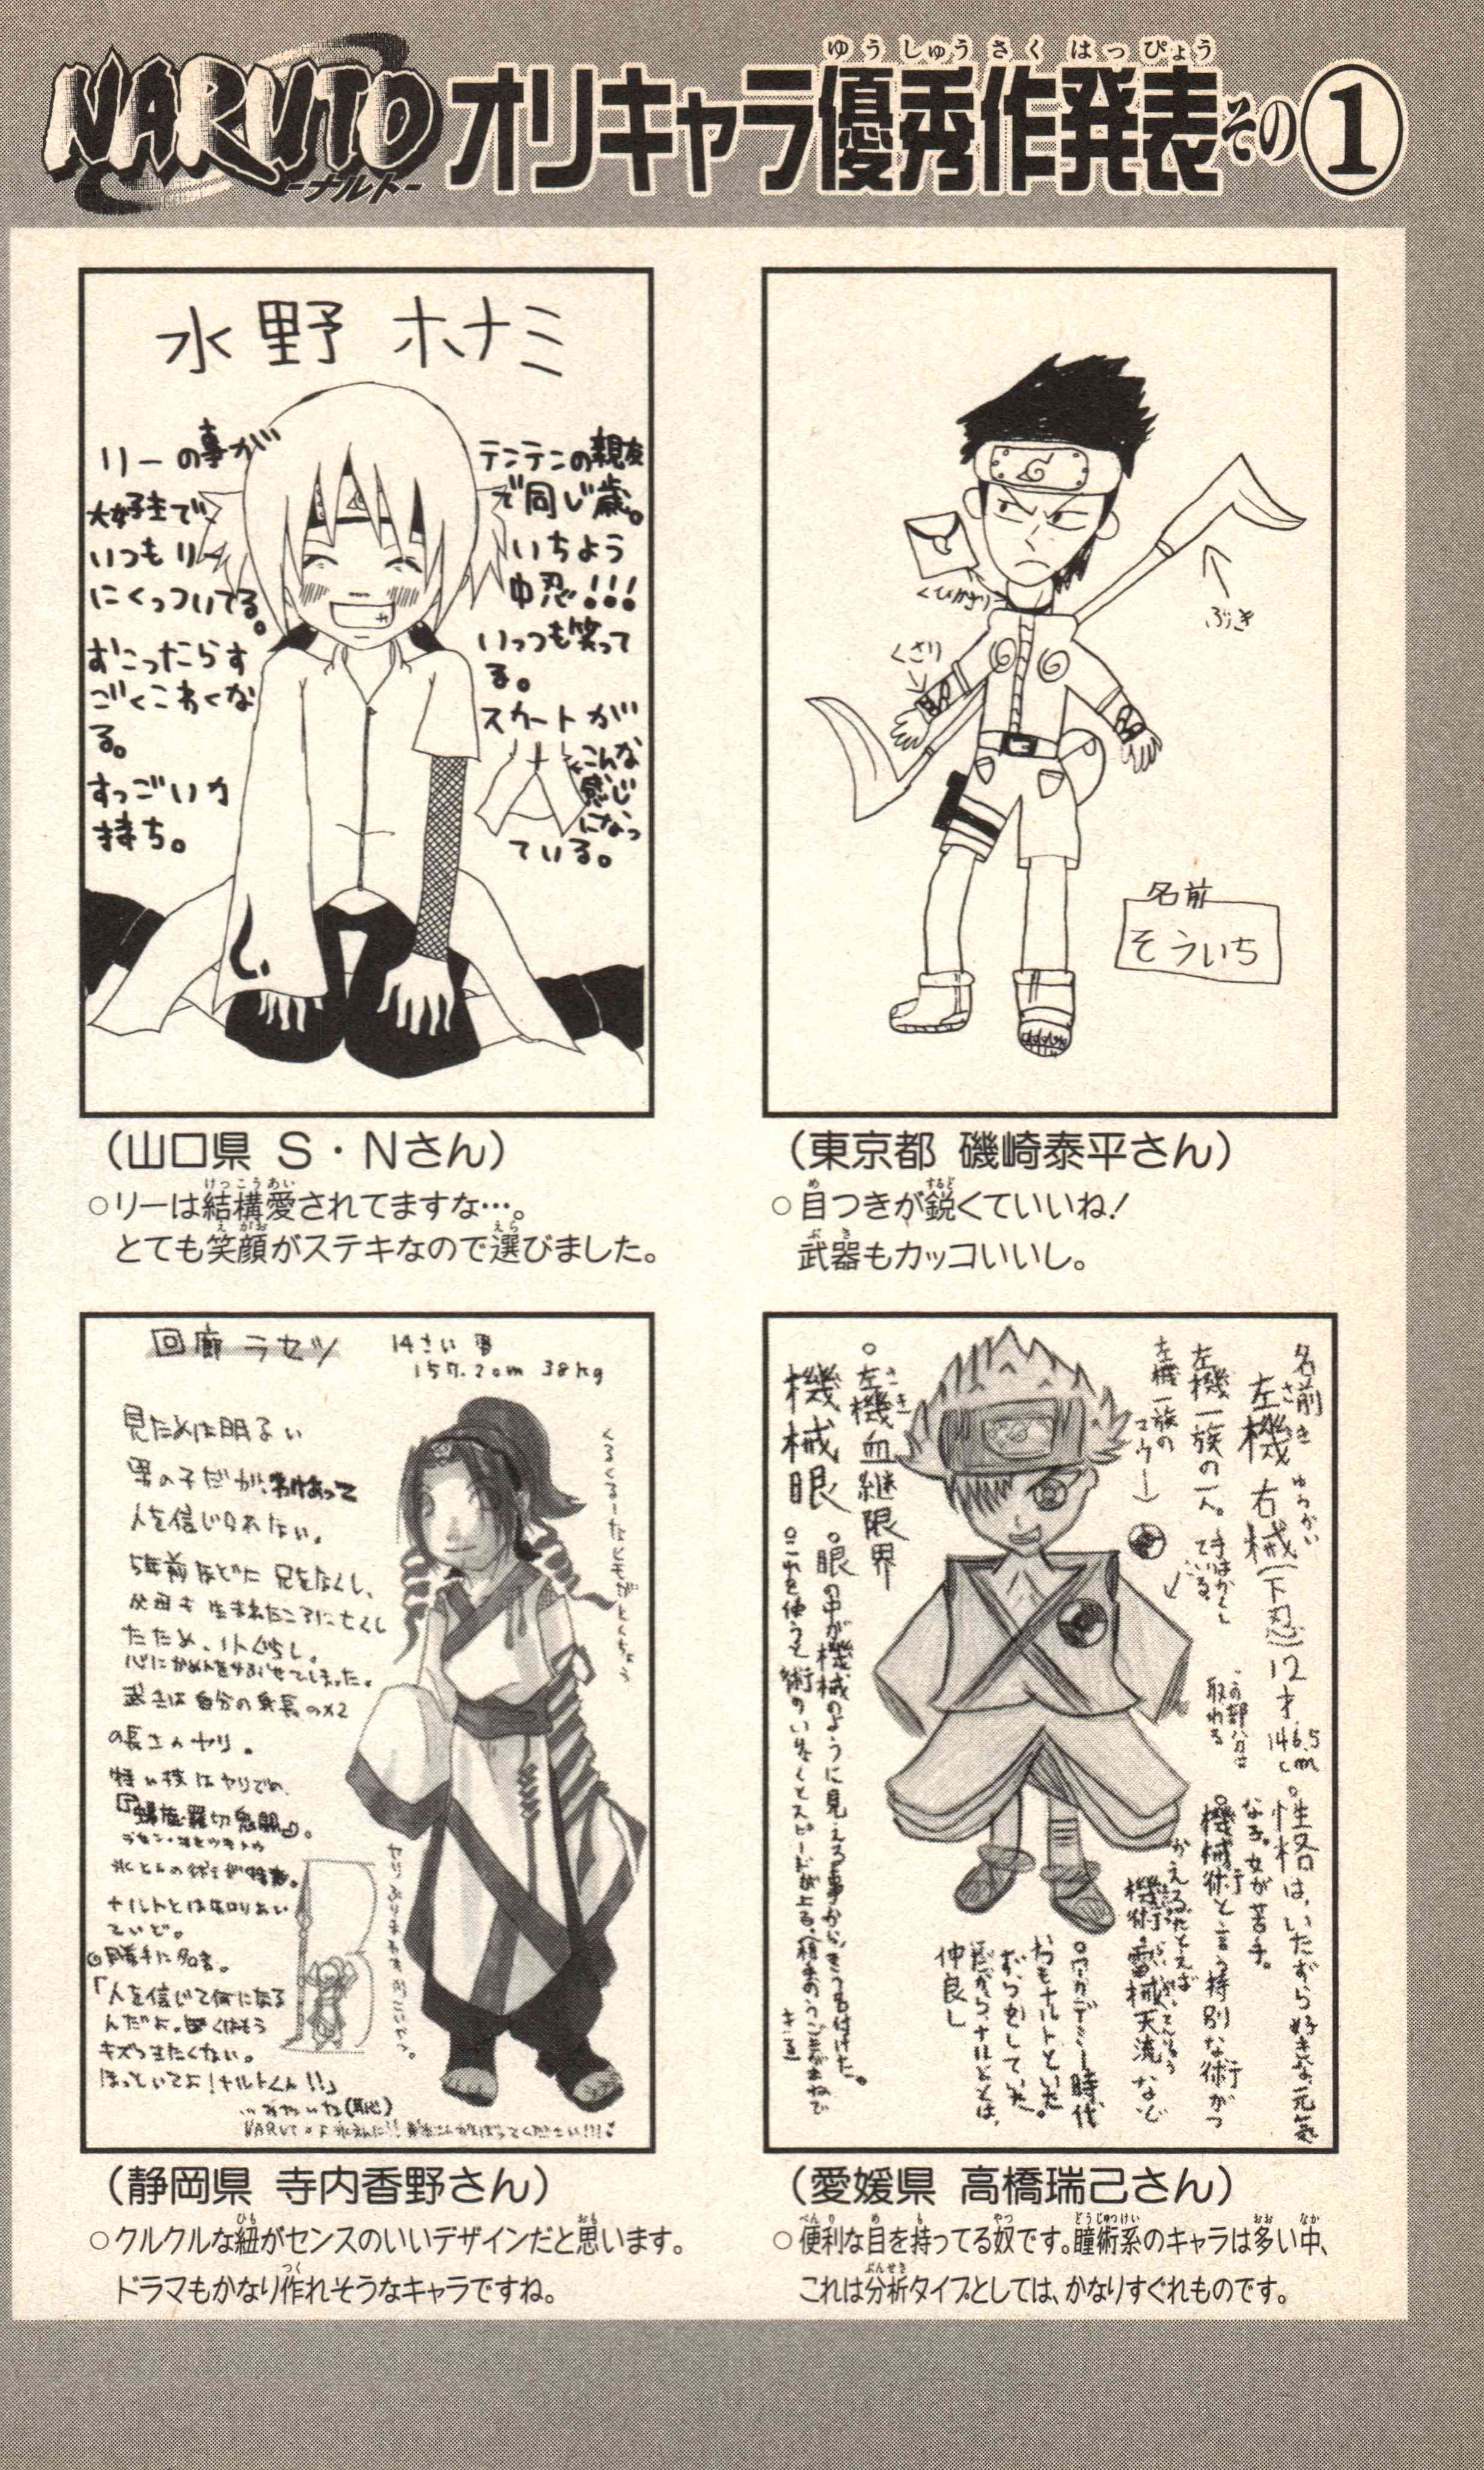 NARUTO
-ナルト-
オリキャラ優秀作発表その①
ゆうしゅうさくはっぴょう
水野 ホナミ
リーの事が
大好きで
いつもリー
にくっついてる。
おこったらす
ごくこわくな
る。
すっごい力
持ち。
テンテンの親友
で同じ歳。
いちよう
中忍!!!
いっつも笑って
る。
スカートが
こんな
感じ
になっ
ている。
(山口県 S・Nさん)
○リーは結構愛されてますな…。
とても笑顔がステキなので選びました。
くびかざり
くさり
ぶき
名前
そういち
(東京都 磯崎泰平さん)
○目つきが鋭くていいね!
武器もカッコいいし。
回廊 ラセツ 14さい
157.2cm 38kg
見ためは明るい
男の子だが、わけあって
人を信じられない。
5年前ほどに兄をなくし、
父母も生まれたころに亡くし
たため、1人ぐらし。
武器は自分の身長の×2
の長さのヤリ。
ナルトとは知りあい
ていど。
「人を信じて何になる
んだよ。ぼくはもう
キズつきたくない。
ほっといてよ!ナルトくん!!」
(静岡県 寺内香野さん)
○クルクルな紐がセンスのいいデザインだと思います。
ドラマもかなり作れそうなキャラですね。
名前
左機 右械(下忍)12才
146.5cm
左機一族の一人。
左機一族の
マーク→
手はかくし
ている。
この部分は
取れる
。性格は、いたずら好きな元気
な子。女が苦手。
機械術と言う特別な術がつ
かえる。たとえば
機術・雷械天流など
。アカデミー時代
わもナルトといた
ずらをしていた。
だからナルトとは、
仲良し
。左機血継限界
機械眼
。眼の中が機械のように見える事から、そう名付けた。
(愛媛県 高橋瑞己さん)
○便利な目を持ってる奴です。瞳術系のキャラは多い中、
これは分析タイプとしては、かなりすぐれものです。